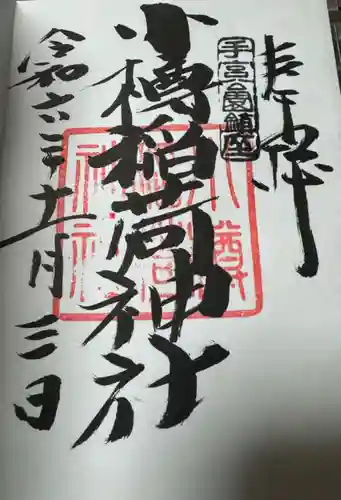 奉拝
手宮公園鎮座
小樽稲荷神社
令和六年十一月三日